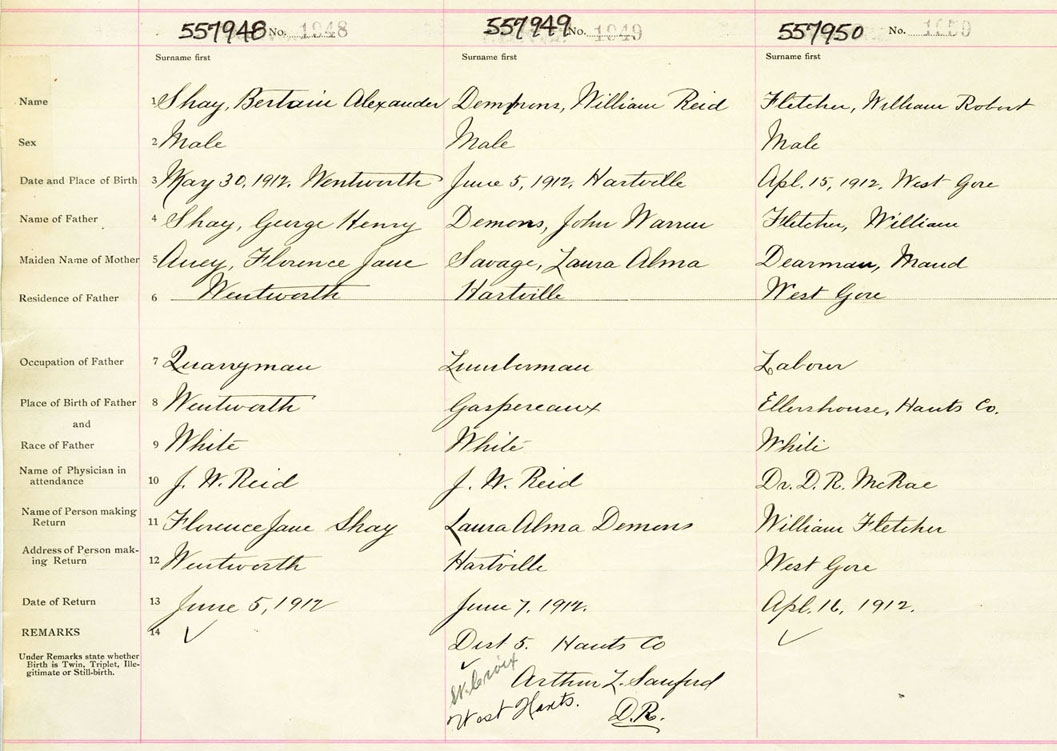 557948 No. 1048 557949 No. 1049 557950 No. 1050
Surname first Surname first Surname first
Name 1 Shay, Bertain Alexander Demmons, William Reid Fletcher, William Robert
Sex 2 Male Male Male
Date and Place of Birth 3 May 30, 1912. Wentworth June 5, 1912, Hartville Apl. 15, 1912, West Gore
Name of Father 4 Shay, George Henry Demons, John Warren Fletcher, William
Maiden Name of Mother 5 Florence Jane Savage, Laura Alma Dearman, Maud
Residence of Father 6 Wentworth Hartville West Gore
Occupation of Father 7 Quarryman Lumberman Labour
Place of Birth of Father 8 Wentworth Gaspereaux Ellershouse, Hants Co.
and
Race of Father 9 White White White
Name of Physician in
attendance 10 J. W. Reid J. W. Reid Dr. D. R. McRae
Name of Person making
Return 11 Florence Jane Shay Laura Alma Demons William Fletcher
Address of Person mak-
ing Return 12 Wentworth Hartville West Gore
Date of Return 13 June 5, 1912 June 7, 1912. Apl. 16, 1912.
REMARKS 14 Dist 5. Hants Co
Under Remarks state whether
Birth is Twin, Triplet, Ille-
gitimate or Still-birth.
St. Croix Arthur L. Sanford
West Hants. D.R.